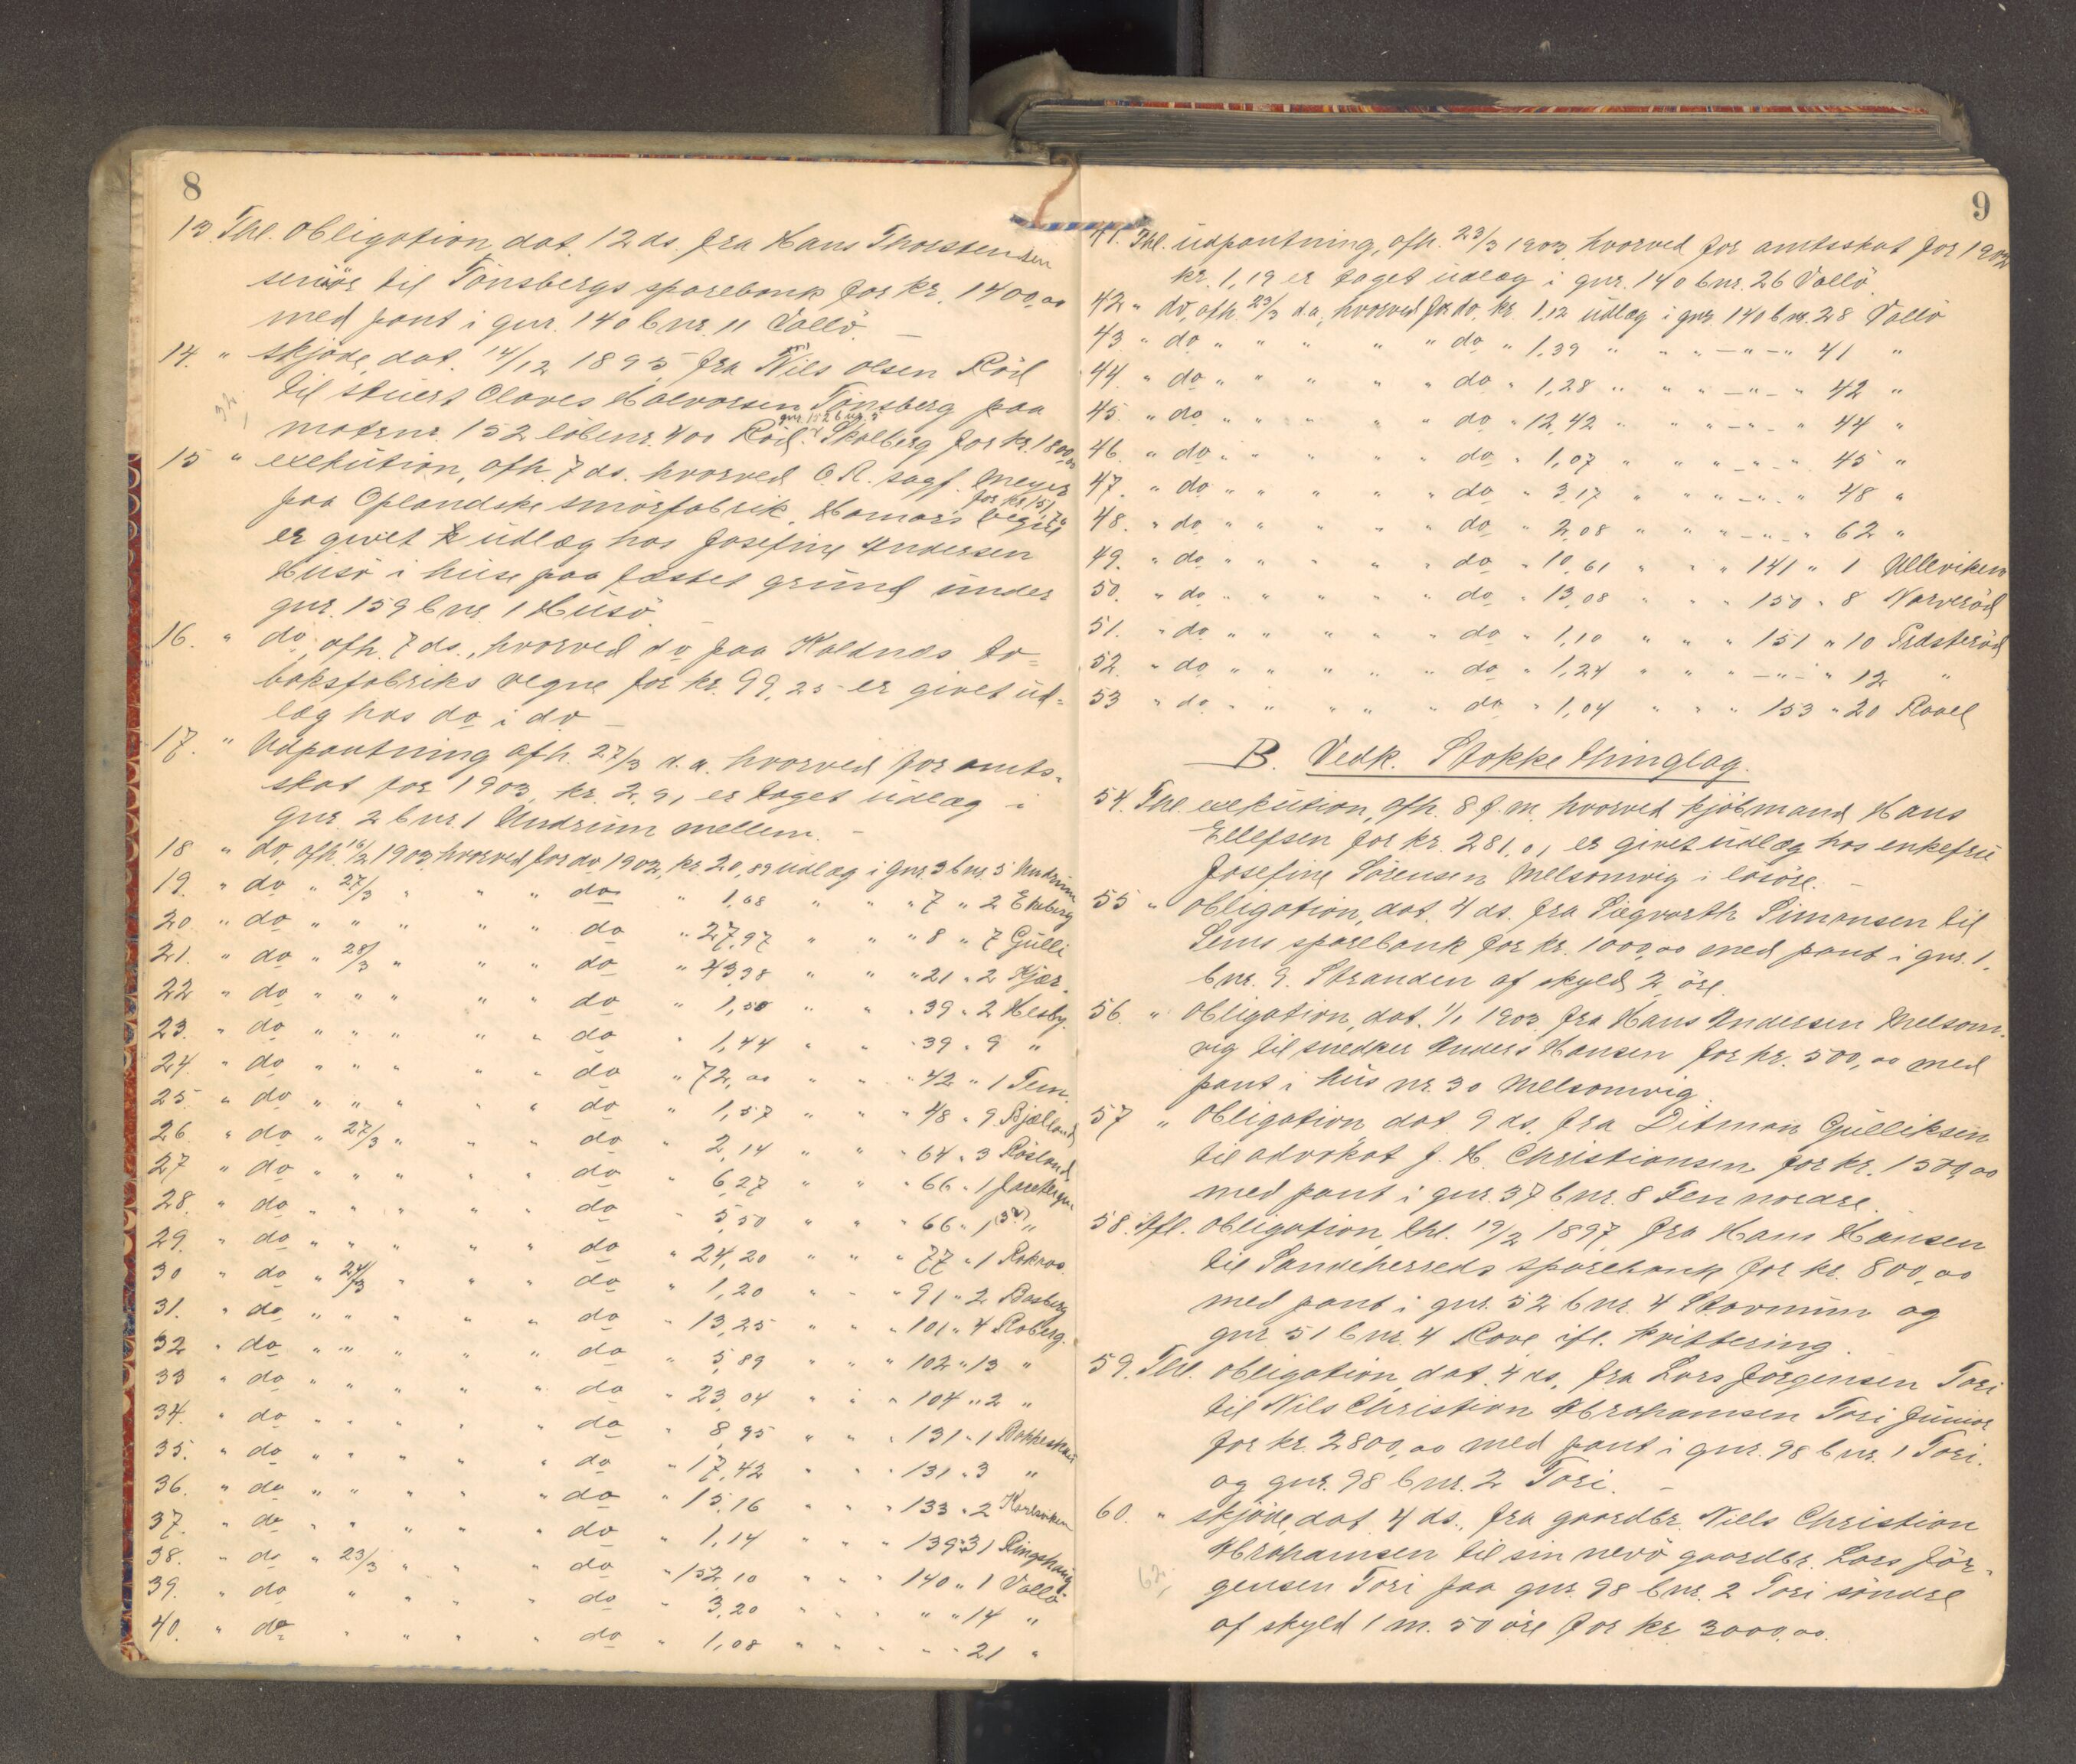 8
13. Thl. Obligation, dat. 12 ds. fra Hans Thorstensen
senior til Tönsbergs sparebank for kr. 1400,00
med pant i gnr. 140 bnr. 11 Vallö. —
14. " skjöde, dat. 14/12 1895 fra Nils Olsen Röd
til stuert Claves Halvorsen Tönsberg paa
gnr. 152 bnr. 5
matrnr. 152 löbenr. 400 Röd, Skalberg for kr. 1800,00
15 " exekution, afh. 7 ds. hvorved O.A. sagf. Meyer
for kr. 151,76
paa Oplandske smörfabrik, Hamar's vegne
er givet udlæg hos Josefine Andersen
Husö i huse paa fæstet grund under
gnr. 159 bnr. 1 Husö.
16. " do, afh. 7 ds., hvorved do paa Kaldnæs to=
baksfabriks vegne for kr. 99,25 er givet ud=
læg hos do i do —
17. " Udpantning afh. 27/3 d.a. hvorved for amts=
skat for 1903, kr. 2,91 er taget udlæg i
gnr. 2 bnr. 1 Undrum mellem. —
18 " do, afh. 16/2 1903 hvorved for do 1902, kr. 20,89 udlæg i gnr. 3 bnr. 5 Undrum
19. " do " 27/3 " " " do " 1,68 " " " 7 " 2 Ekeberg
20. " do " " " " " do " 27,97 " " " 8 " 7 Gulli
21. " do " 28/3 " " " do " 43,98 " " " 21 " 2 Kjær.
22 " do " " " " " do " 1,50 " " " 39 " 2 Hesby.
23. " do " " " " " do " 1,44 " " " 39 " 9 "
24. " do " " " " " do " 72,00 " " " 42 " 1 Tem.
25. " do " " " " " do " 1,57 " " " 48 " 9 Bjælland
26. " do " 27/3 " " " do " 2,14 " " " 64 " 3 Røsland
27 " do " " " " " do " 6,27 " " " 66 " 1
28. " do " " " " " do " 5,50 " " " 66 " 1 "
29. " do " " " " " do " 24,20 " " " 77 " 1
30 " do " 24/3 " " " do " 1,20 " " " 91 " 2 Basberg
31. " do " " " " " do " 13,25 " " " 101 " 4 Roberg.
32 " do " " " " " do " 5,89 " " " 102 " 13 "
33 " do " " " " " do " 23,04 " " " 104 " 2 "
34. " do " " " " " do " 8,95 " " " 131 " 1
35. " do " " " " " do " 17,42 " " " 131 " 3 "
36. " do " " " " " do " 15,16 " " " 133 " 2
37. " do " " " " " do " 1,14 " " " 139 " 31 Ringshaug
38. " do " 23/3 " " " do " 152,10 " " " 140 " 1 Vallö
39. " do " " " " do " 3,20 " " " " " 14 "
40. " do " " " " do " 1,08 " " " " " 21 "
9
41. Thl. udpantning, afh. 23/3 1903, hvorved for amtsskat for 1902
kr. 1,19 er taget udlæg i gnr. 140 bnr. 26 Vallö
42 " do, afh. 23/3 d.a., hvorved for do, kr. 1,12 udlæg i gnr. 140 bnr. 28 Vallö
43. " do " " " " " do " 1,39 " " " — " — " 41 "
44. " do " " " " " do " 1,28 " " " — " — " 42 "
45. " do " " " " " do " 12,42 " " " — " — " 44 "
46. " do " " " " " do " 1,07 " " " — " — " 45 "
47. " do " " " " " do " 3,17 " " " — " — " 48 "
48. " do " " " " " do " 2,08 " " " — " — " 62 "
49. " do " " " " " do " 10,61 " " " 141 " 1 Ulleviken
50. " do " " " " " do " 13,08 " " " 150 " 8 Narveröd
51. " do " " " " " do " 1,10 " " " 151 " 10 Presteröd
52. " do " " " " " do " 1,24 " " " — " — " 12 "
53 " do " " " " " do " 1,04 " " " 153 " 20 Raael
B. Vedk. Stokke thinglag.
54. Thl. exekution, afh. 8 f.m. hvorved kjöbmand Hans
Ellefsen for kr. 281,01 er givet udlæg hos enkefru
Josefine Sörensen Melsomvig i lösöre. —
55 " Obligation, dat. 4 ds. fra Siegvarth Simonsen til
Sems sparebank for kr. 1000,00 med pant i gnr. 1,
bnr. 9. Stranden af skyld 2 öre.
56. " Obligation, dat. 1/1 1903 fra Hans Andersen Melsom-
vig til snedker Anders Hansen for kr. 500,00 med
pant i hus nr. 30 Melsomvig.
57 " Obligation, dat 9 ds. fra Ditman Gulliksen
til advokat J. H. Christiansen for kr. 1500,00
med pant i gnr. 37 bnr. 8 Fen nordre.
58. Afl. Obligation, thl. 19/2 1897, fra Hans Hansen
til Sandeherreds sparebank for kr. 800,00
med pant i gnr. 52 bnr. 4 Storum og
gnr. 51 bnr. 4 Rove ifl. kvittering.
59. Thl. obligation, dat. 4 ds., fra Lars Jörgensen Tori
til Nils Christian Abrahamsen Tori junior
for kr. 2800,00 med pant i gnr. 98 bnr. 1 Tori.
og gnr. 98 bnr. 2 Tori. —
60. " skjöde, dat. 4 ds., fra gaardbr. Niels Christian
Abrahamsen til sin nevö gaardbr. Lars Jör-
gensen Tori paa gnr. 98 bnr. 2 Tori söndre
af skyld 1 m. 50 öre for kr. 3000,00.